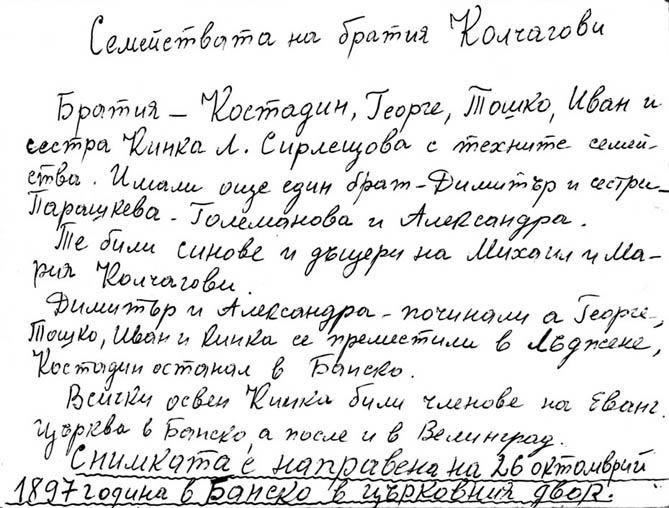 Семействата на братия Колчагови
Братия – Костадин, Георге, Тошко, Иван и
сестра Кинка Л. Сирлещова с техните семей-
ства. Имали още един брат – Димитър и сестри –
Парашкева – Големанова и Александра.
Те били синове и дъщери на Михаил и Ма-
рия Колчагови.
Димитър и Александра – починали а Георге,
Тошко, Иван и Кинка се преместили в Лъджене,
Костадин останал в Банско.
Всички освен Кинка били членове на Еванг.
църква в Банско, а после и в Велинград.
Снимката е направена на 26 октомврий
1897 година в Банско в църковния двор.